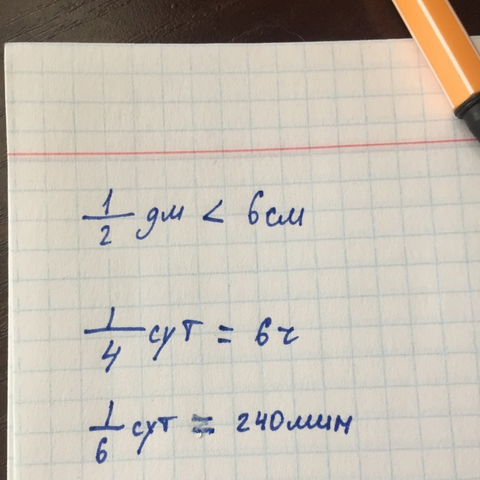 1/2 дм < 6см
1/4 сут = 6ч
1/6 сут = 240мин